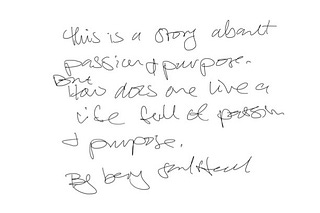 This is a story about
passion & purpose.
But
How does one live a
life full of passion
& purpose.
By being